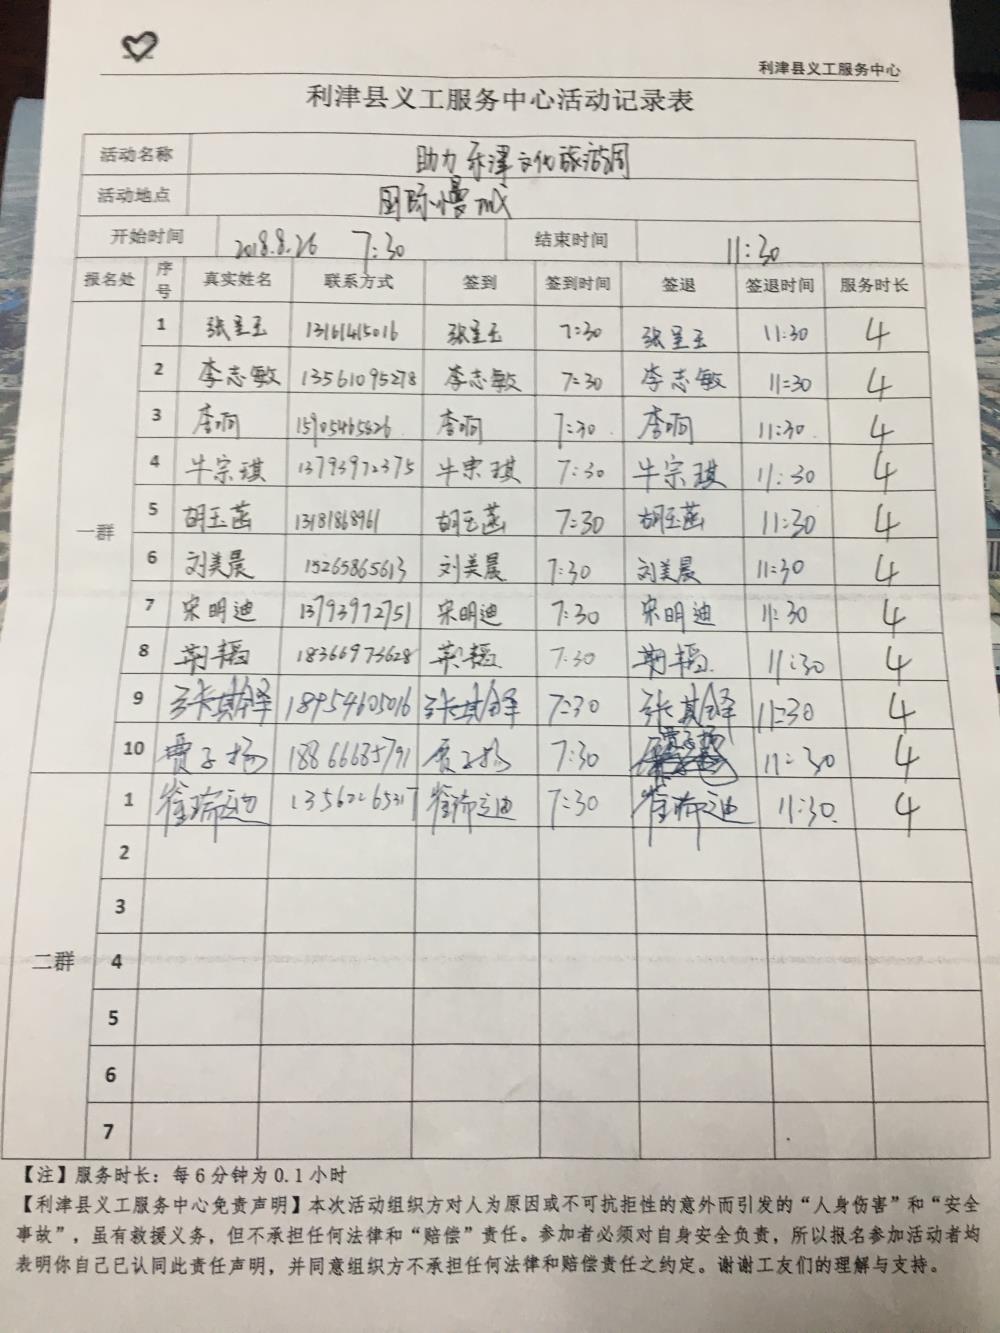 利津县义工服务中心
利津县义工服务中心活动记录表
活动名称 助力 乐津文化旅游周
活动地点 国际慢城
开始时间 2018.8.26 7:30 结束时间 11:30
报名处 序号 真实姓名 联系方式 签到 签到时间 签退 签退时间 服务时长
一群
1 张呈玉 13161415016 张呈玉 7:30 张呈玉 11:30 4
2 李志敏 13561095278 李志敏 7:30 李志敏 11:30 4
3 李 7:30 李 11:30 4
4 牛宗琪 13793972375 牛宗琪 7:30 牛宗琪 11:30 4
5 胡玉菡 13181868961 胡玉菡 7:30 胡玉菡 11:30 4
6 刘美晨 15265865613 刘美晨 7:30 刘美晨 11:30 4
7 宋明迪 13793972751 宋明迪 7:30 宋明迪 11:30 4
8 荆韬 18366973628 荆韬 7:30 荆韬 11:30 4
9 张其铎 18954605016 张其铎 7:30 张其铎 11:30 4
10 贾子杨 18866685791 贾子杨 7:30 贾子杨 11:30 4
二群
1 崔瑞迪 13562265317 崔瑞迪 7:30 崔瑞迪 11:30 4
2
3
4
5
6
7
【注】服务时长：每6分钟为0.1小时
【利津县义工服务中心免责声明】本次活动组织方对人为原因或不可抗拒性的意外而引发的“人身伤害”和“安全
事故”，虽有救援义务，但不承担任何法律和“赔偿”责任。参加者必须对自身安全负责，所以报名参加活动者均
表明你自己已认同此责任声明，并同意组织方不承担任何法律和赔偿责任之约定。谢谢工友们的理解与支持。